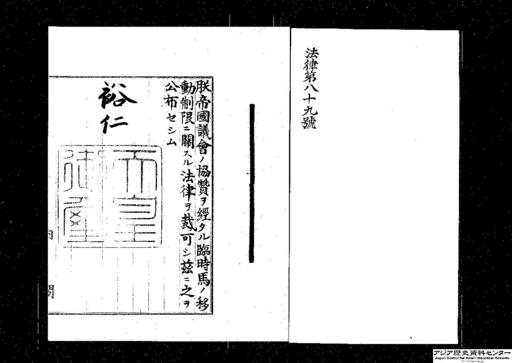 法律第八十九號
朕帝國議會ノ協贊ヲ經タル臨時馬ノ移
動制限ニ關スル法律ヲ裁可シ茲ニ之ヲ
公布セシム
裕仁
天皇
御璽
内閣
アジア歴史資料センター
Japan Center for Asian Historical Records